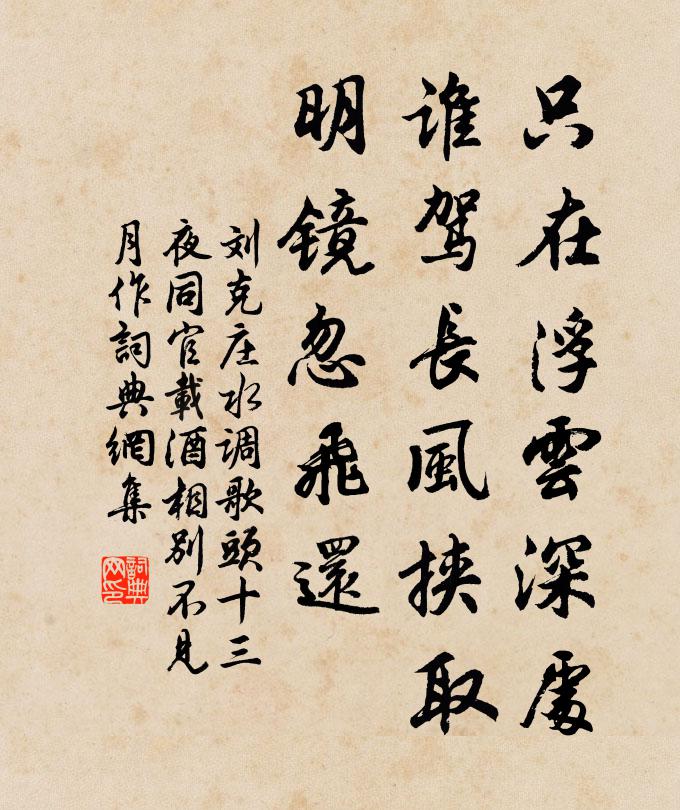 只在浮雲深處
誰駕長風挾取
明鏡忽飛還
刘克庄水调歌頭十三
夜同官載酒相别不見
月作詞典網集
詞典网印